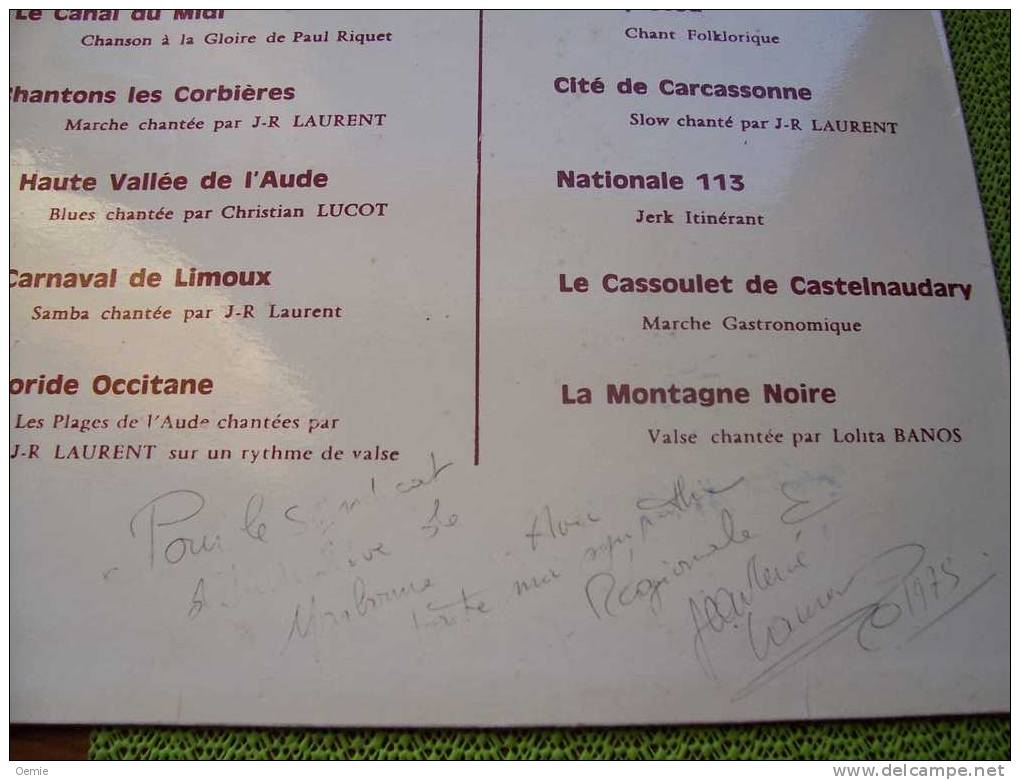 Le Canal du Midi
Chanson à la Gloire de Paul Riquet
hantons les Corbières
Marche chantée par J-R LAURENT
Haute Vallée de l'Aude
Blues chantée par Christian LUCOT
Carnaval de Limoux
Samba chantée par J-R Laurent
oride Occitane
Les Plages de l'Aude chantées par
J-R LAURENT sur un rythme de valse
Chant Folklorique
Cité de Carcassonne
Slow chanté par J-R LAURENT
Nationale 113
Jerk Itinérant
Le Cassoulet de Castelnaudary
Marche Gastronomique
La Montagne Noire
Valse chantée par Lolita BANOS
Pour le Syndicat
de
Narbonne
Avec
toute ma sympathie
Régionale
Jean René
Laurent
1975
Oemie
www.delcampe.net